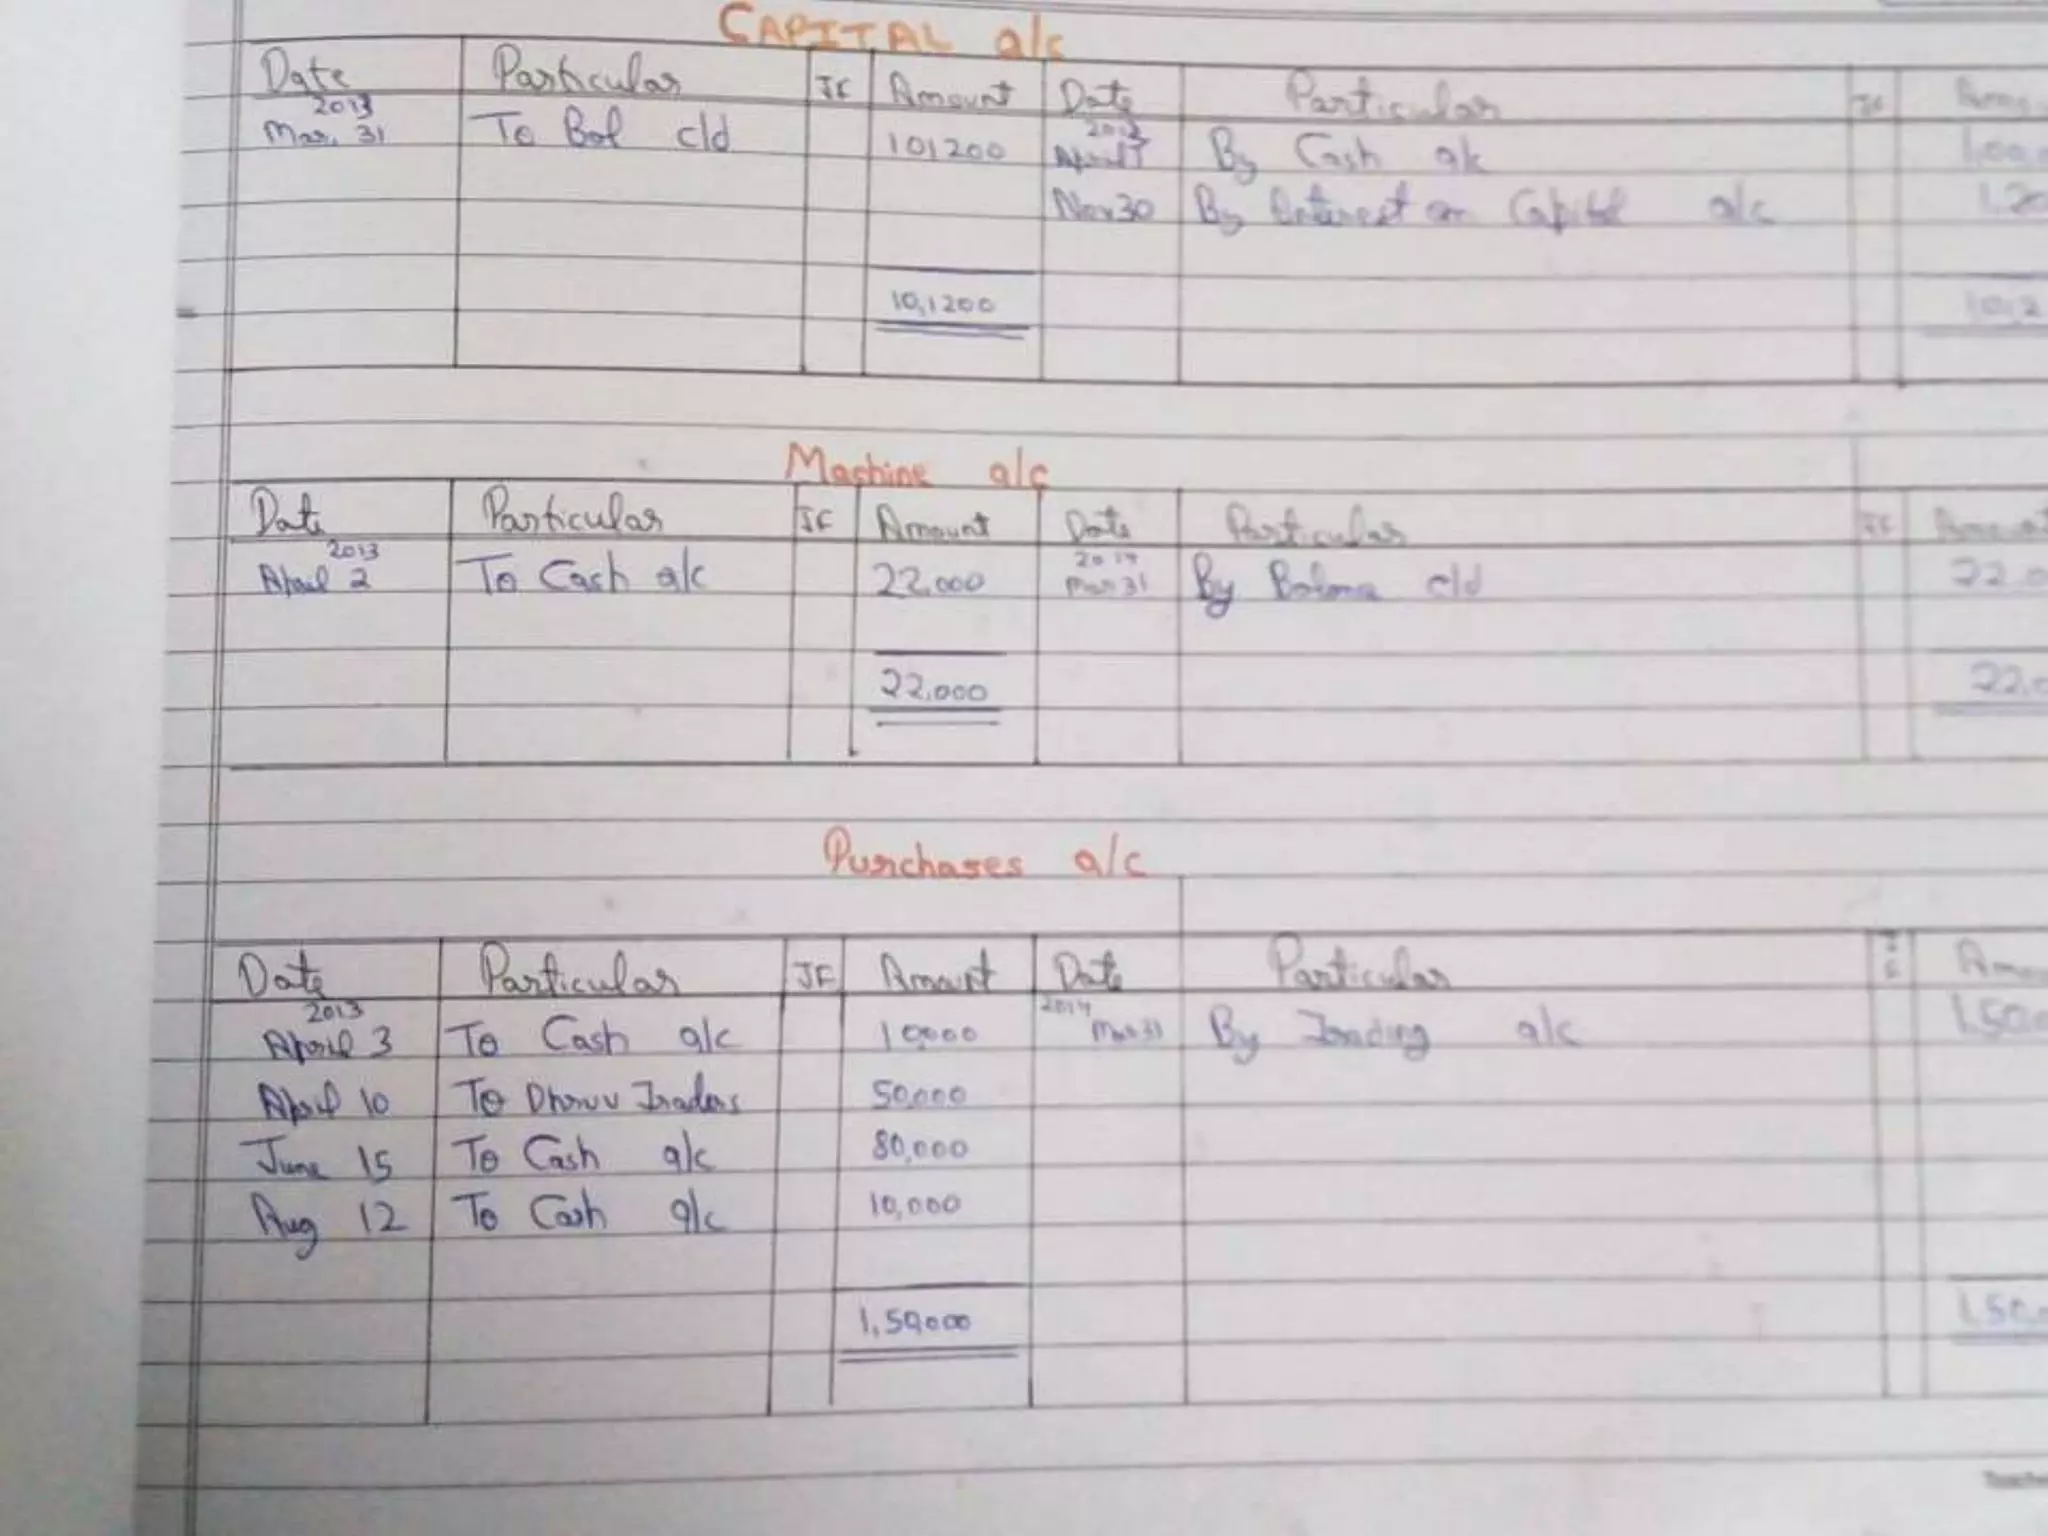 CAPITAL a/c
Date Particular JF Amount Date Particular JF
2013 2013
Mar. 31 To Bal c/d 101200 April 1 By Cash a/c
Nov 30 By Interest on Capital a/c
10,1200
Machine a/c
Date Particular JF Amount Date Particular JF Amount
2013 2014
April 2 To Cash a/c 22,000 Mar 31 By Balance c/d
22,000
Purchases a/c
Date Particular JF Amount Date Particular JF
2013 2014
April 3 To Cash a/c 10,000 Mar 31 By Trading a/c
April 10 To Dhruv Traders 50,000
June 15 To Cash a/c 80,000
Aug 12 To Cash a/c 10,000
1,50,000